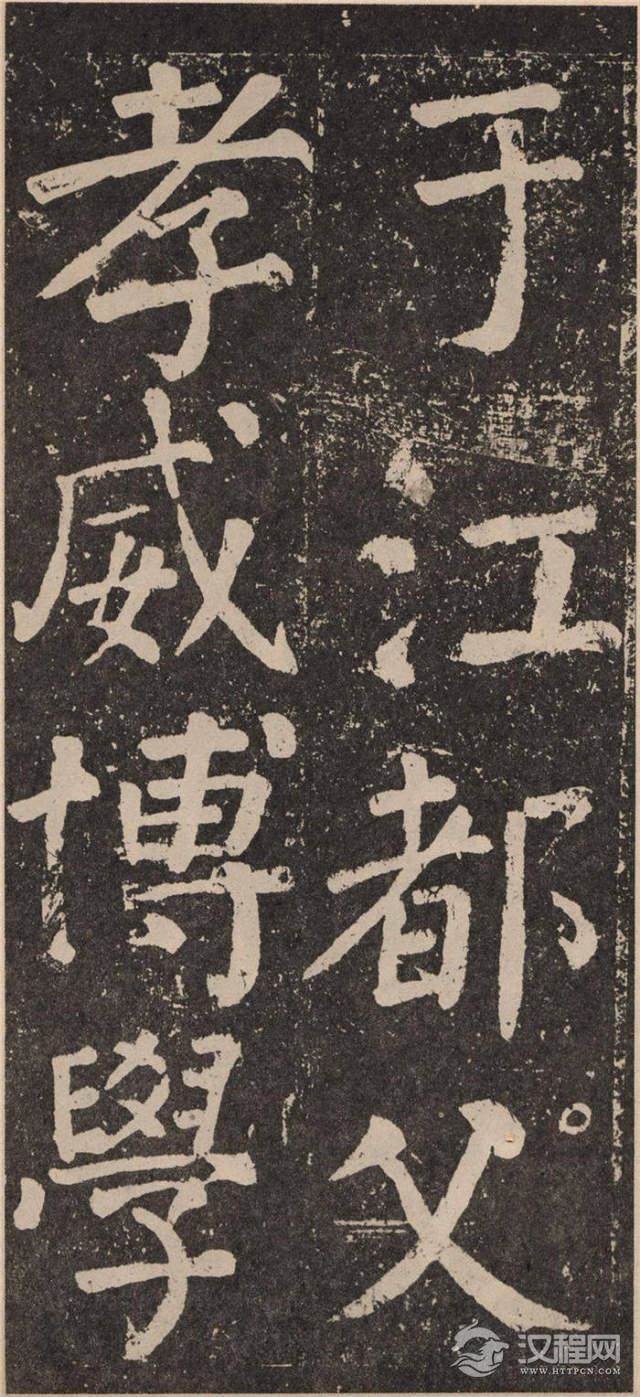 于江都父
孝威博學
汉程网
WWW.HTTPCN.COM